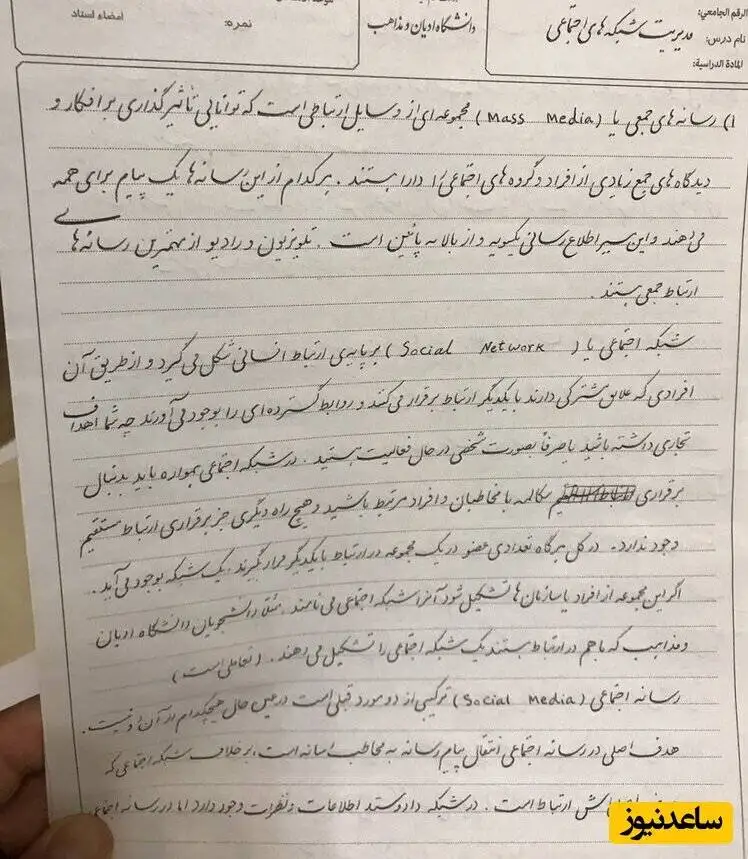 الرقم الجامعي:
نام درس: مدیریت شبکه های اجتماعی
المادة الدراسية:
دانشگاه ادیان و مذاهب
نمره:
امضاء استاد
۱) رسانه های جمعی یا (Mass Media) مجموعه ای از وسایل ارتباطی است که توانایی تاثیر گذاری بر افکار و
دیدگاه های جمع زیادی از افراد و گروه های اجتماعی را دارا هستند. هر کدام از این رسانه ها یک پیام برای همه
می دهند و این سیر اطلاع رسانی یکسویه و از بالا به پائین است. تلویزیون و رادیو از مهمترین رسانه های
ارتباط جمعی هستند.
شبکه اجتماعی یا (Social Network) بر پایه ی ارتباط انسانی شکل می گیرد و از طریق آن
افرادی که علایق مشترکی دارند با یکدیگر ارتباط برقرار می کنند و روابط گسترده ای را بوجود می آورند چه شما اهداف
تجاری داشته باشید یا صرفاً بصورت شخصی در حال فعالیت هستید. در شبکه اجتماعی همواره باید بدنبال
برقراری مکالمه با مخاطبان و افراد مرتبط باشید و هیچ راه دیگری جز برقراری ارتباط مستقیم
وجود ندارد. در کل هرگاه تعدادی عضو در یک مجموعه در ارتباط با یکدیگر قرار گیرند، یک شبکه بوجود می آید.
اگر این مجموعه از افراد یا سازمان ها تشکیل شود آنرا شبکه اجتماعی می نامند. مثلاً دانشجویان دانشگاه ادیان
و مذاهب که با هم در ارتباط هستند یک شبکه اجتماعی را تشکیل می دهند. (تعاملی است)
رسانه اجتماعی (Social Media) ترکیبی از دو مورد قبلی است در عین حال هیچکدام از آن دو نیست.
هدف اصلی در رسانه اجتماعی انتقال پیام رسانه به مخاطب است، برخلاف شبکه اجتماعی که
ارتباط است. در شبکه داد و ستد اطلاعات و نظرات وجود دارد اما در رسانه اجتماعی
ساعدنیوز